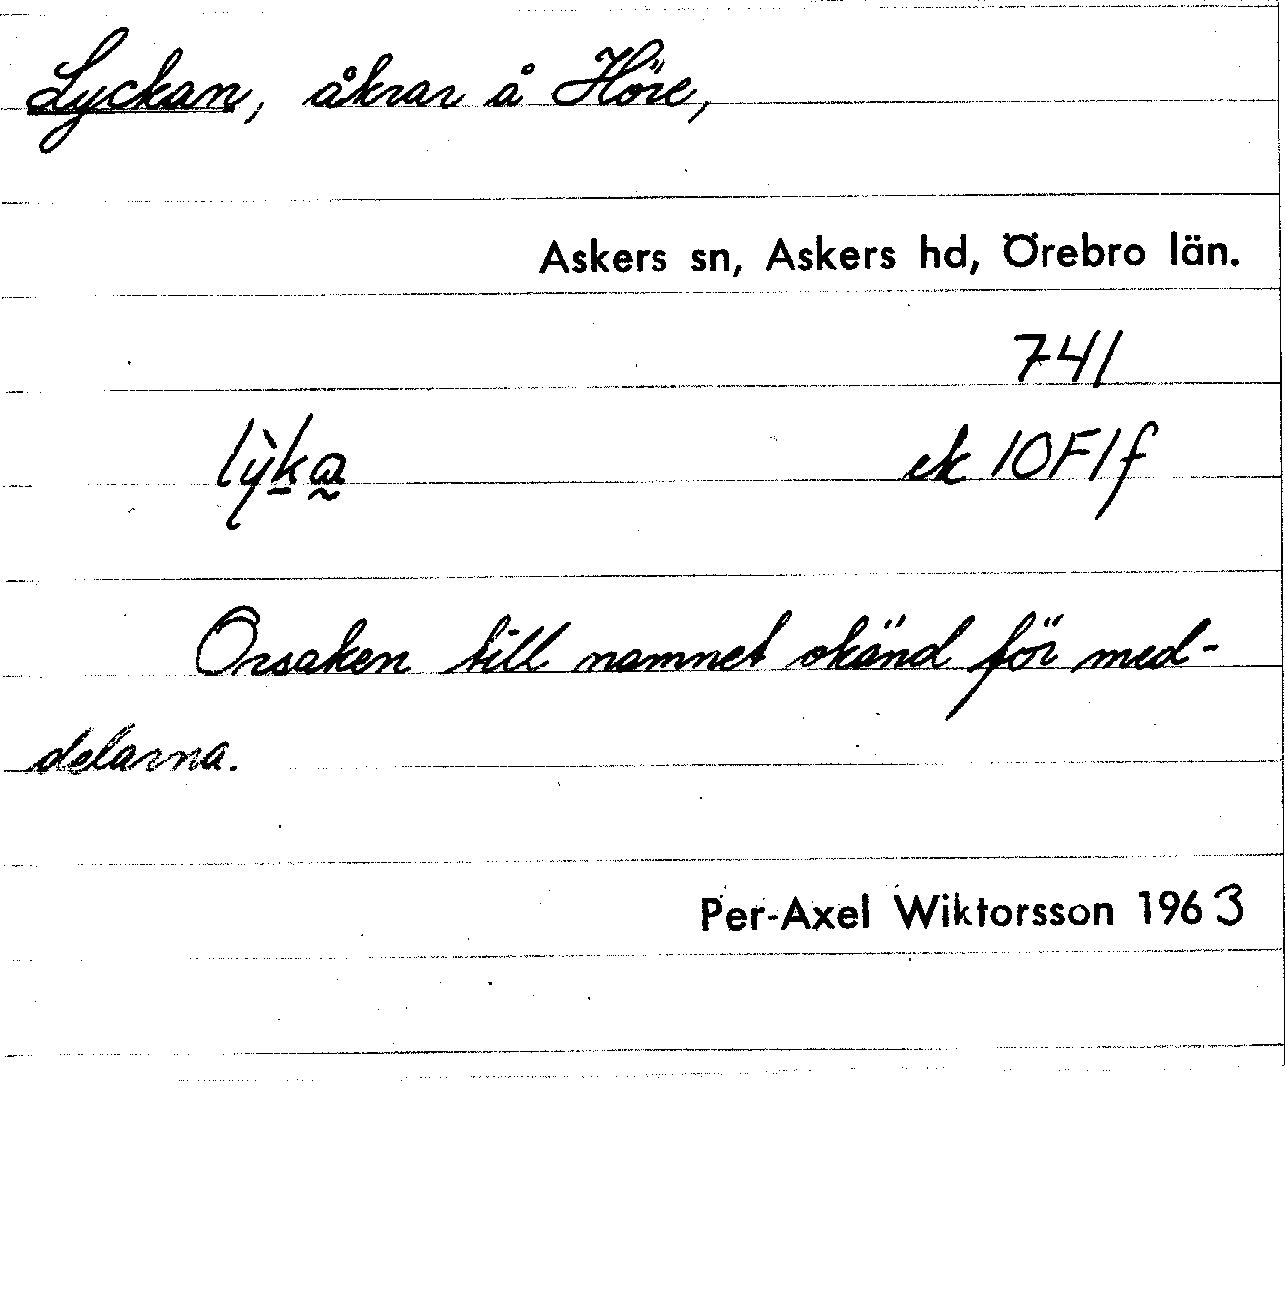 Lyckan, åkrar å Höre,
Askers sn, Askers hd, Örebro län.
741
lỳka̰
ek 10F1f
Orsaken till namnet okänd för med-
delarna.
Per-Axel Wiktorsson 1963